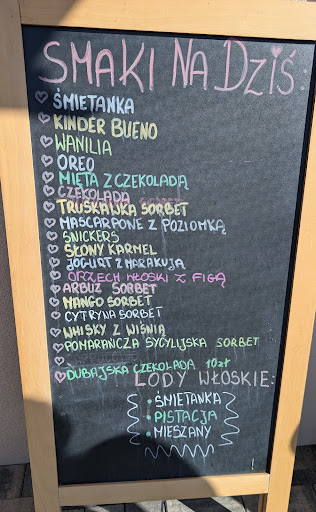 SMAKI NA DZIŚ:
ŚMIETANKA
KINDER BUENO
WANILIA
OREO
MIĘTA Z CZEKOLADĄ
CZEKOLADA
TRUSKAWKA SORBET
MASCARPONE Z POZIOMKĄ
SNICKERS
SŁONY KARMEL
JOGURT Z MARAKUJĄ
ORZECH WŁOSKI Z FIGĄ
ARBUZ SORBET
MANGO SORBET
CYTRYNA SORBET
WHISKY Z WIŚNIĄ
POMARAŃCZA SYCYLIJSKA SORBET
DUBAJSKA CZEKOLADA 10zł
LODY WŁOSKIE:
• ŚMIETANKA
• PISTACJA
• MIESZANY